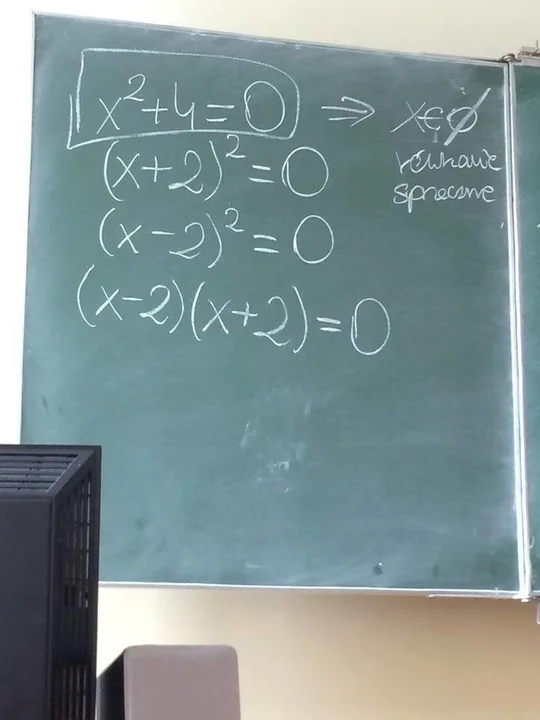 x²+4=0 ⇒ x∈∅
równanie
sprzeczne
(x+2)²=0
(x-2)²=0
(x-2)(x+2)=0